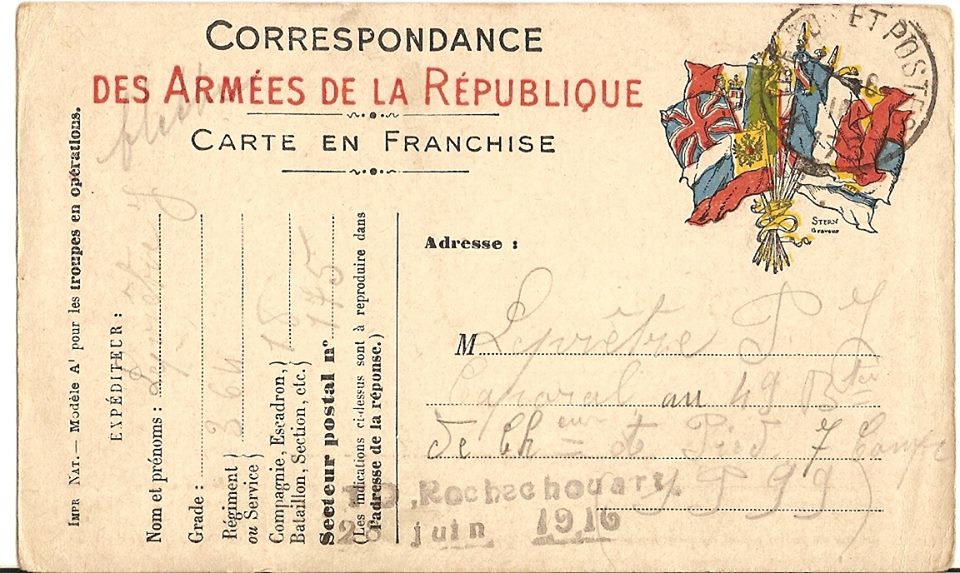 CORRESPONDANCE
DES ARMÉES DE LA RÉPUBLIQUE
CARTE EN FRANCHISE
ET POSTES
STERN
Graveur
IMPR NAT. — Modèle A¹ pour les troupes en opérations.
EXPÉDITEUR :
Nom et prénoms : Leprêtre
Grade :
Régiment } 364
ou Service }
Compagnie, Escadron, } 18
Bataillon, Section, etc. }
Secteur postal n° 175
(Les indications ci-dessus sont à reproduire dans
l'adresse de la réponse.)
Adresse :
M Leprêtre P. J
Caporal au 49 B
de Ch à Pied 7
Rochechouart
juin 1916